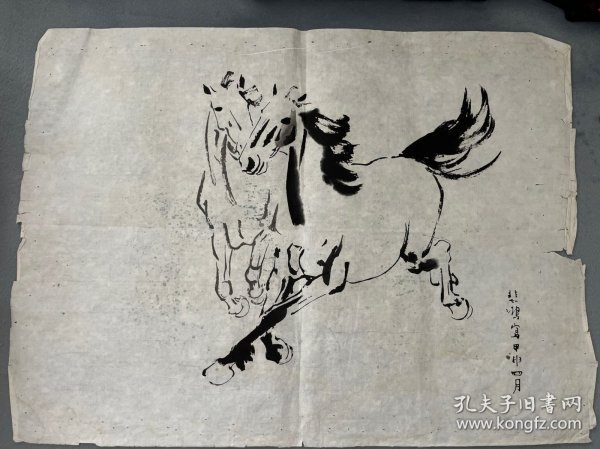 悲鴻寫甲申四月
孔夫子旧书网
www.kongfz.com